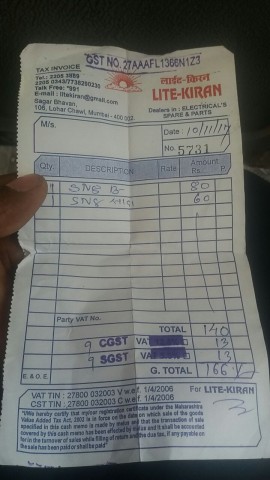 GST NO. 27AAAFL1366N1Z3
TAX INVOICE
Talk Free: *991
E-mail : litekiran@gmail.com
Sagar Bhavan,
108, Lohar Chawl, Mumbai - 400 002.
लाईट-किरन
LITE-KIRAN
Dealers in : ELECTRICAL'S
SPARE & PARTS
M/s.
Date : 10/11/17
No. 5731
Qty. DESCRIPTION Rate Amount
Rs. P.
80
60
Party VAT No.
TOTAL 140
9 CGST VAT 13
9 SGST VAT 13
E. & O. E. G. TOTAL 166
VAT TIN : 27800 032003 V w.e.f. 1/4/2006
CST TIN : 27800 032003 C w.e.f. 1/4/2006
For LITE-KIRAN
"I/We hereby certify that my/our registration certificate under the Maharashtra
Value Added Tax Act, 2002 is in force on the date on which sale of the goods
specified in this cash memo is made by me/us and that the transaction of sale
covered by this cash memo has been effected by me/us and it shall be accounted
for in the turnover of sales while filing of return and the due tax, if any payable on
the sale has been paid or shall be paid"